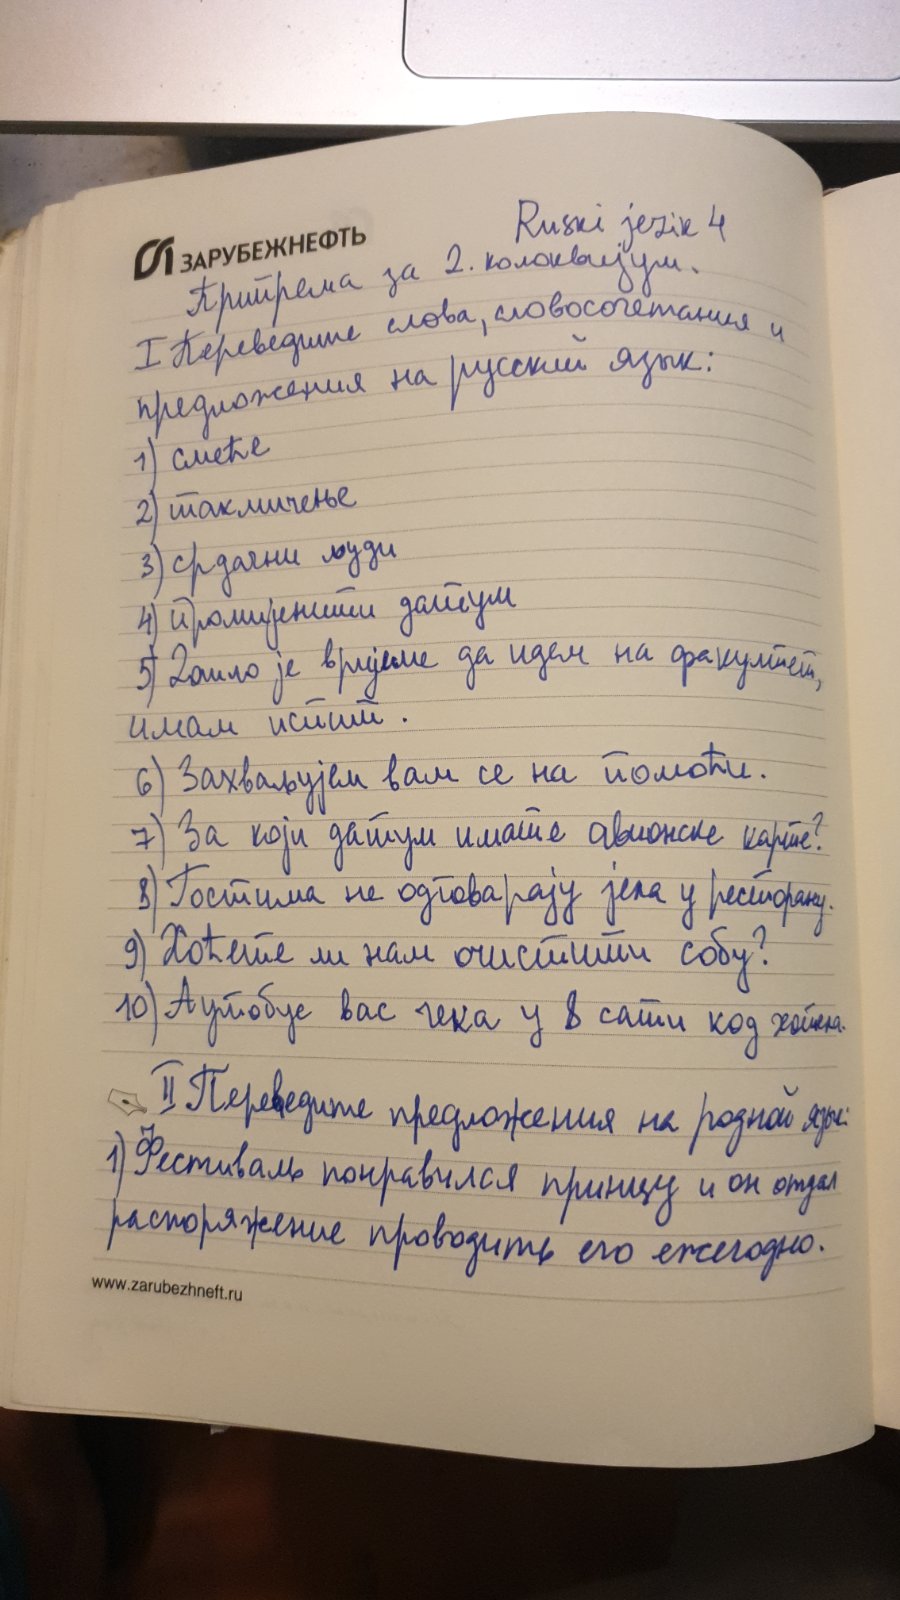 Ruski jezik 4
ЗАРУБЕЖНЕФТЬ
Припрема за 2. колоквијум.
I Переведите слова, словосочетания и
предложения на русский язык:
1) смеће
2) такмичење
3) срдачни људи
4) промијенити датум
5) Дошло је вријеме да идем на факултет,
имам испит.
6) Захваљујем вам се на помоћи.
7) За који датум имате авионске карте?
8) Гостима не одговарају јела у ресторану.
9) Хоћете ли нам очистити собу?
10) Аутобус вас чека у 8 сати код хотела.
II Переведите предложения на родной язык:
1) Фестиваль понравился принцу и он отдал
распоряжение проводить его ежегодно.
www.zarubezhneft.ru